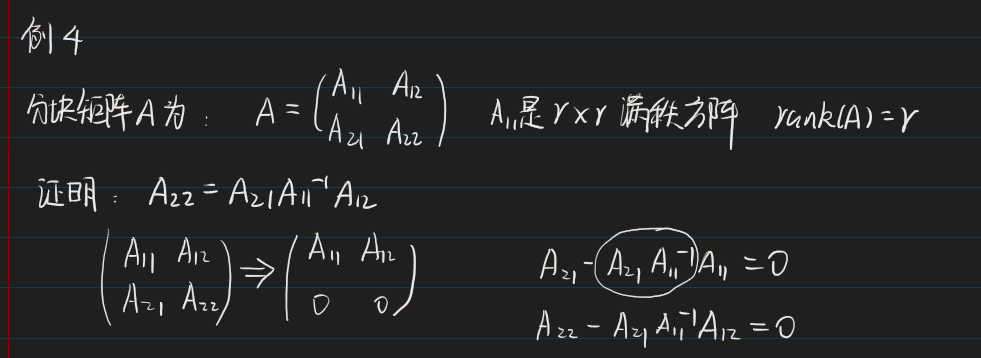 例4
分块矩阵A为: A = (A₁₁ A₁₂ A₂₁ A₂₂) A₁₁是r×r 满秩方阵 rank(A)=r
证明: A₂₂ = A₂₁A₁₁⁻¹A₁₂
(A₁₁ A₁₂ A₂₁ A₂₂) ⇒ (A₁₁ A₁₂ 0 0)
A₂₁ - A₂₁A₁₁⁻¹A₁₁ = 0
A₂₂ - A₂₁A₁₁⁻¹A₁₂ = 0